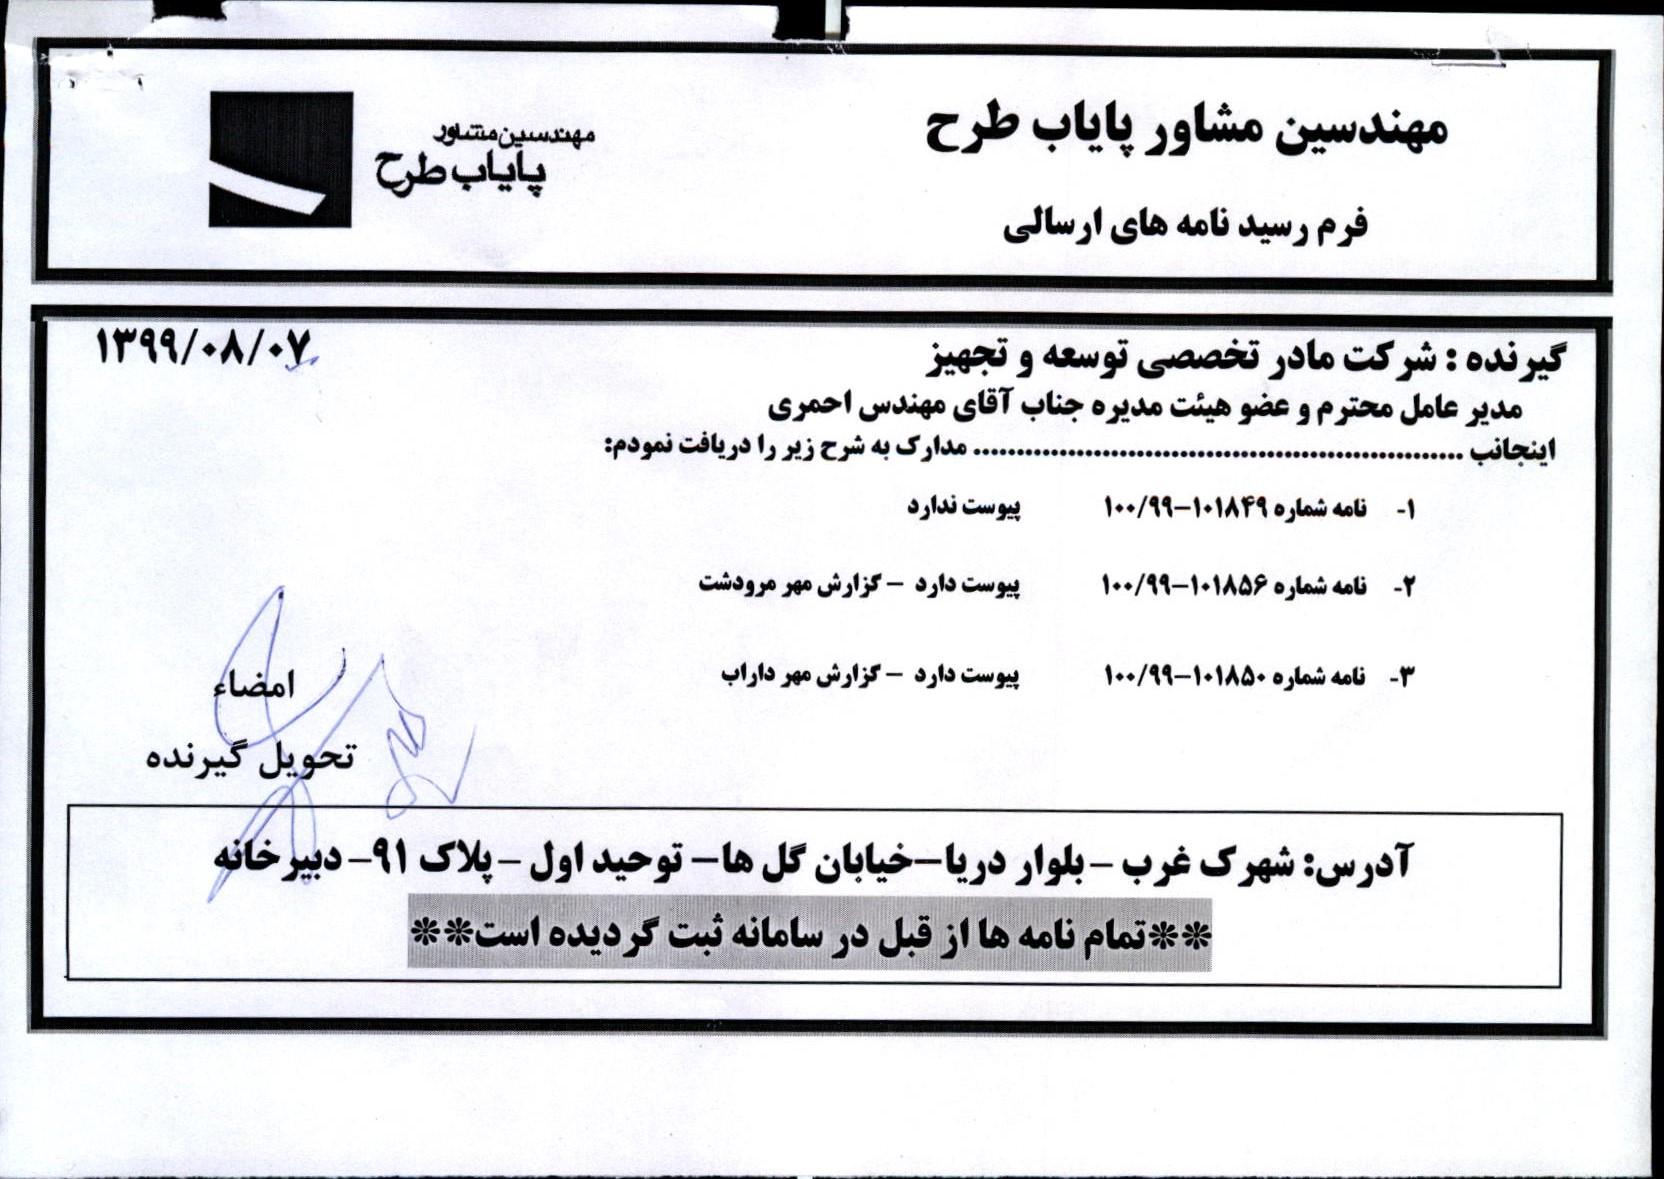 مهندسین مشاور پایاب طرح
مهندسین مشاور
پایاب طرح
فرم رسید نامه های ارسالی
گیرنده : شرکت مادر تخصصی توسعه و تجهیز
۱۳۹۹/۰۸/۰۷
مدیر عامل محترم و عضو هیئت مدیره جناب آقای مهندس احمری
اینجانب ........................................................ مدارک به شرح زیر را دریافت نمودم:
۱- نامه شماره ۱۰۱۸۴۹-۱۰۰/۹۹ پیوست ندارد
۲- نامه شماره ۱۰۱۸۵۶-۱۰۰/۹۹ پیوست دارد - گزارش مهر مرودشت
۳- نامه شماره ۱۰۱۸۵۰-۱۰۰/۹۹ پیوست دارد - گزارش مهر داراب
امضاء
تحویل گیرنده
آدرس: شهرک غرب - بلوار دریا-خیابان گل ها- توحید اول - پلاک ۹۱- دبیرخانه
**تمام نامه ها از قبل در سامانه ثبت گردیده است**